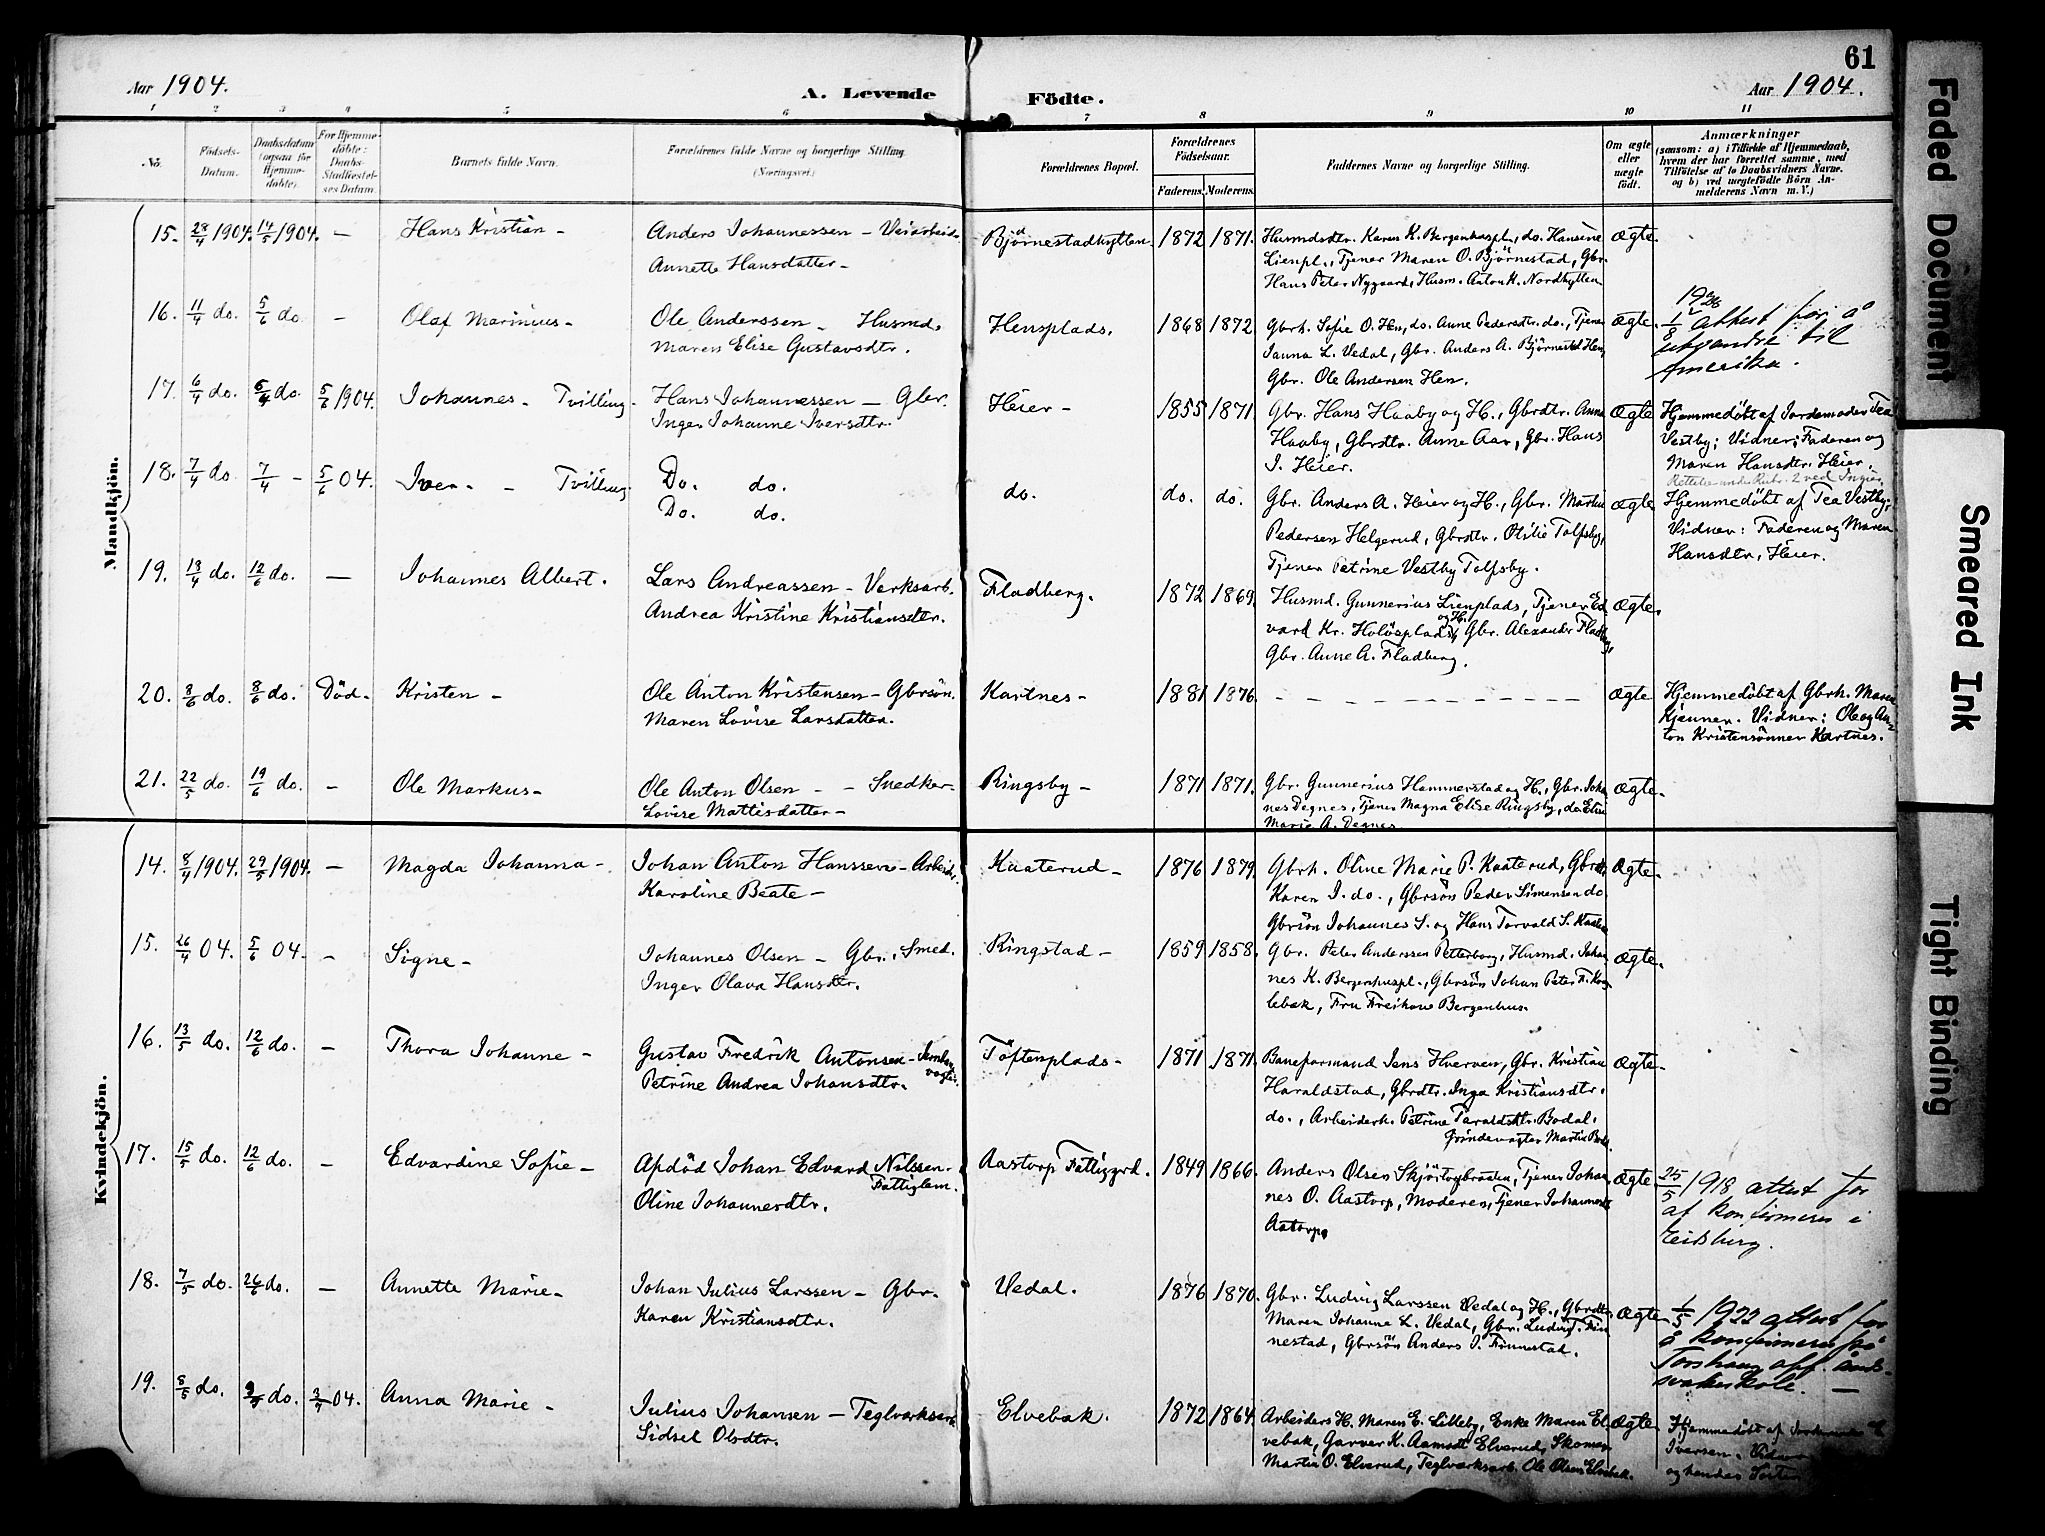 61
Aar 1904.
A. Levende Fødte.
Aar 1904.
1 2 3 4 5 6 7 8 9 10 11
No.
Fødsels-
Datum.
Daabsdatum
(ogsaa for
Hjemme-
døbte).
For Hjemme-
døbte:
Daabs-
Stadfæstel-
ses Datum.
Barnets fulde Navn.
Forældrenes fulde Navne og borgerlige Stilling.
(Næringsvei.)
Forældrenes Bopæl.
Forældrenes
Fødselsaar.
Faderens. Moderens.
Faddernes Navne og borgerlige Stilling.
Om ægte
eller
uægte
født.
Anmærkninger
(saasom: a) i Tilfælde af Hjemmedaab,
hvem der har forrettet samme, med
Tilføielse af to Daabsvidners Navne.
og b) ved uægtefødte Börn An-
melderens Navn m. V.)
Mandkjön.
15. 28/4 1904. 14/5 1904. — Hans Kristian —
Anders Johannessen — Veiarbeid.
Annette Hansdatter —
Bjørnestadhytten. 1872 1871.
Husmdsdtr. Karen K. Bergenhuspl., do. Hansine
Lienpl., Tjener Maren O. Bjørnestad, Gbr.
Hans Peter Nygaard, Husm. Anton H. Nordhytten
Ægte.
16. 11/4 do. 5/6 do. — Olaf Marinius —
Ole Anderssen — Husmd.
Maren Elise Gustavsdtr.
Hensplads. 1868 1872.
Gbrh. Sofie O. Hen, do. Anne Pedersdtr. do., Tjener
Janna L. Vedal, Gbr. Anders A. Bjørnestad Hen,
Gbr. Ole Andersen Hen.
Ægte.
1926
1/8 attest for å
utvandre til
Amerika.
17. 6/4 do. 6/4 do. 5/6 1904. Johannes — Tvilling.
Hans Johannessen — Gbr.
Inger Johanne Iversdtr.
Heier — 1855 1871.
Gbr. Hans Haaby og H., Gbrdtr. Anna
Haaby, Gbrdtr. Anne Aar, Gbr. Hans
J. Heier.
Ægte
Hjemmedøbt af Jordemoder Tea
Vestby; Vidner: Faderen og
Maren Hansdtr. Heier.
18. 7/4 do. 7/4 — 5/6 04. Iver — — Tvilling.
Do. do.
Do. do.
do. do. do.
Gbr. Anders A. Heier og H., Gbr. Martin
Pedersen Helgerud, Gbrdtr. Otilie Tolfsby,
Tjener Petrine Vestby Tolfsby.
Ægte
Hjemmedøbt af Tea Vestby.
Vidner: Faderen og Maren
Hansdtr. Heier.
19. 13/4 do. 12/6 do. — Johannes Albert.
Lars Andreassen — Verksarb.
Andrea Kristine Kristiansdtr.
Fladberg. 1872 1869.
Husmd. Gunnerius Lienplads, Tjener Ed-
vard Kr. Holöspladsen og H., Gbr. Alexander Fladberg,
Gbr. Anne A. Fladberg.
Ægte.
20. 8/6 do. 8/6 do. Död — Kristen —
Ole Anton Kristensen — Gbrsön.
Maren Lovise Larsdatter.
Kartnes — 1881 1876.
— — — — — — — — — — —
Ægte
Hjemmedøbt af Gbrh. Maren
Kjenner. Vidner: Ole og An-
ton Kristensönner Kartnes.
21. 22/5 do. 19/6 do. — Ole Markus —
Ole Anton Olsen — — Snedker —
Lovise Mattisdatter —
Ringsby — 1871 1871.
Gbr. Gunnerius Hammerstad og H., Gbr. Johan-
nes Degnes, Tjener Magna Elise Ringsby, do. Elise
Marie A. Degnes
Ægte.
Kvindekjön.
14. 8/4 1904. 29/5 1904. — Magda Johanna —
Johan Anton Hanssen — Arbeider.
Karoline Beate —
Kaaterud — 1876 1879.
Gbrh. Oline Marie P. Kaaterud, Gbrdtr.
Karen I. do., Gbrsön Peder Simensen do.
Gbrsön Johannes S. og Hans Torvald S. Kaaterud
Ægte.
15. 26/4 04. 5/6 04. — Signe —
Johannes Olsen — Gbr., Smed.
Inger Olava Hansdtr.
Ringstad — 1859 1858.
Gbr. Peter Anderssen Petterborg, Husmd. Johan-
nes K. Bergenhuspl., Gbrsön Johan Peter F. Kog-
lebæk, Fru Freikone Bergenhus.
Ægte.
16. 13/5 do. 12/6 do. — Thora Johanne —
Gustav Fredrik Antonsen — Jernban-
vogter.
Petrine Andrea Johansdtr.
Töftenplads — 1871 1871.
Baneformand Jens Hverven, Gbr. Kristian
Haraldstad, Gbrdtr. Inga Kristiansdtr.
do., Arbeiderh. Petrine Taraldsdtr. Bodal.
Grindevogter Martin Bodal.
Ægte.
17. 15/5 do. 12/6 do. — Edvardine Sofie —
Afdöd Johan Edvard Nilssen —
Fattiglem.
Oline Johannesdtr.
Aastorp Fattiggrd. 1849 1866.
Anders Olsen Skjörtogbraaten, Tjener Johan-
nes O. Aastorp, Moderen, Tjener Johannes
Aastorp.
Ægte.
25/5 1918 attest for
at konfirmeres i
Eidsberg.
18. 7/5 do. 26/6 do. — Annette Marie —
Johan Julius Larssen — Gbr.
Karen Kristiansdtr.
Vedal. 1876 1870.
Gbr. Ludvig Larssen Vedal og H., Gbrdtr.
Maren Johanne L. Vedal, Gbr. Ludvig F. Fin-
nestad, Gbrsön Anders J. Finnestad.
Ægte
1/5 1922 attest for
å konfirmeres på
Torshaug off. ånds-
svakeskole. —
19. 8/5 do. do. 3/7 04. Anna Marie —
Julius Johansen — Teglverksarb.
Sidsel Olsdtr.
Elvebak. 1872 1864.
Arbeiders H. Maren E. Lilleby, Enke Maren El-
vebak, Garver K. Aamodt Elverud, Skomager
Martin O. Elverud, Teglværksarb. Ole Olsen Elvebak.
Ægte.
Hjemmedøbt af
Iversen. Vidner
og hendes
Faded Document
Smeared Ink
Tight Binding